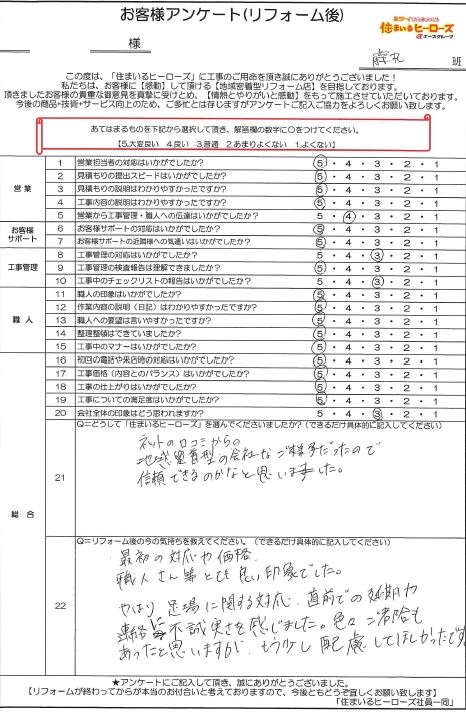 お客様アンケート(リフォーム後)
様
住まいるヒーローズ
エースグループ
班
この度は、「住まいるヒーローズ」に工事のご用命を頂き誠にありがとうございました！
私たちは、お客様に【感動】して頂ける【地域密着型リフォーム店】を目指しております。
頂きましたお客様の貴重な御意見を真摯に受けとめ、【情熱とやりがいと感動】をもって施工させていただいております。
今後の商品+技術+サービス向上のため、ご多忙とは存じますがアンケートご記入ご協力をよろしくお願い致します。
あてはまるものを下記から選択して頂き、解答欄の数字に○をつけてください。
【5.大変良い　4.良い　3.普通　2.あまりよくない　1.よくない】
営業
1 営業担当者の対応はいかがでしたか? 5・4・3・2・1
2 見積もりの提出スピードはいかがでしたか? 5・4・3・2・1
3 見積もりの説明はわかりやすかったですか? 5・4・3・2・1
4 工事内容の説明はわかりやすかったですか? 5・4・3・2・1
5 営業から工事管理・職人への伝達はいかがでしたか? 5・4・3・2・1
お客様サポート
6 お客様サポートの対応はいかがでしたか? 5・4・3・2・1
7 お客様サポートの近隣様への気遣いはいかがでしたか? 5・4・3・2・1
工事管理
8 工事管理の対応はいかがでしたか? 5・4・3・2・1
9 工事管理の検査報告は理解できましたか? 5・4・3・2・1
10 工事中のチェックリストの報告はいかがでしたか? 5・4・3・2・1
職人
11 職人の印象はいかがでしたか? 5・4・3・2・1
12 作業内容の説明（日記）はわかりやすかったですか? 5・4・3・2・1
13 職人への要望は言いやすかったですか? 5・4・3・2・1
14 整理整頓はできていましたか? 5・4・3・2・1
15 工事中のマナーはいかがでしたか? 5・4・3・2・1
総合
16 初回の電話や来店時の対応はいかがでしたか? 5・4・3・2・1
17 工事価格（内容とのバランス）はいかがでしたか? 5・4・3・2・1
18 工事の仕上がりはいかがでしたか? 5・4・3・2・1
19 工事についての満足度はいかがでしたか? 5・4・3・2・1
20 会社全体の印象はどう思われますか? 5・4・3・2・1
21
Q=どうして「住まいるヒーローズ」を選んでくださいましたか?（できるだけ具体的に記入してください）
ネットの口コミからの
地域密着型の会社なご様子だったので
信頼できるのかなと思いました。
22
Q=リフォーム後の今の気持ちを教えてください。（できるだけ具体的に記入してください）
最初の対応や価格、
職人さん等とも良い印象でした。
やはり足場に関する対応、直前での延期や
連絡に不誠実さを感じました。色々ご諸陰も
あったと思いますが、もう少し配慮してほしかったです
★アンケートにご記入して頂き、誠にありがとうございました。
【リフォームが終わってからが本当のお付合いと考えておりますので、今後ともどうぞ宜しくお願い致します】
「住まいるヒーローズ社員一同」